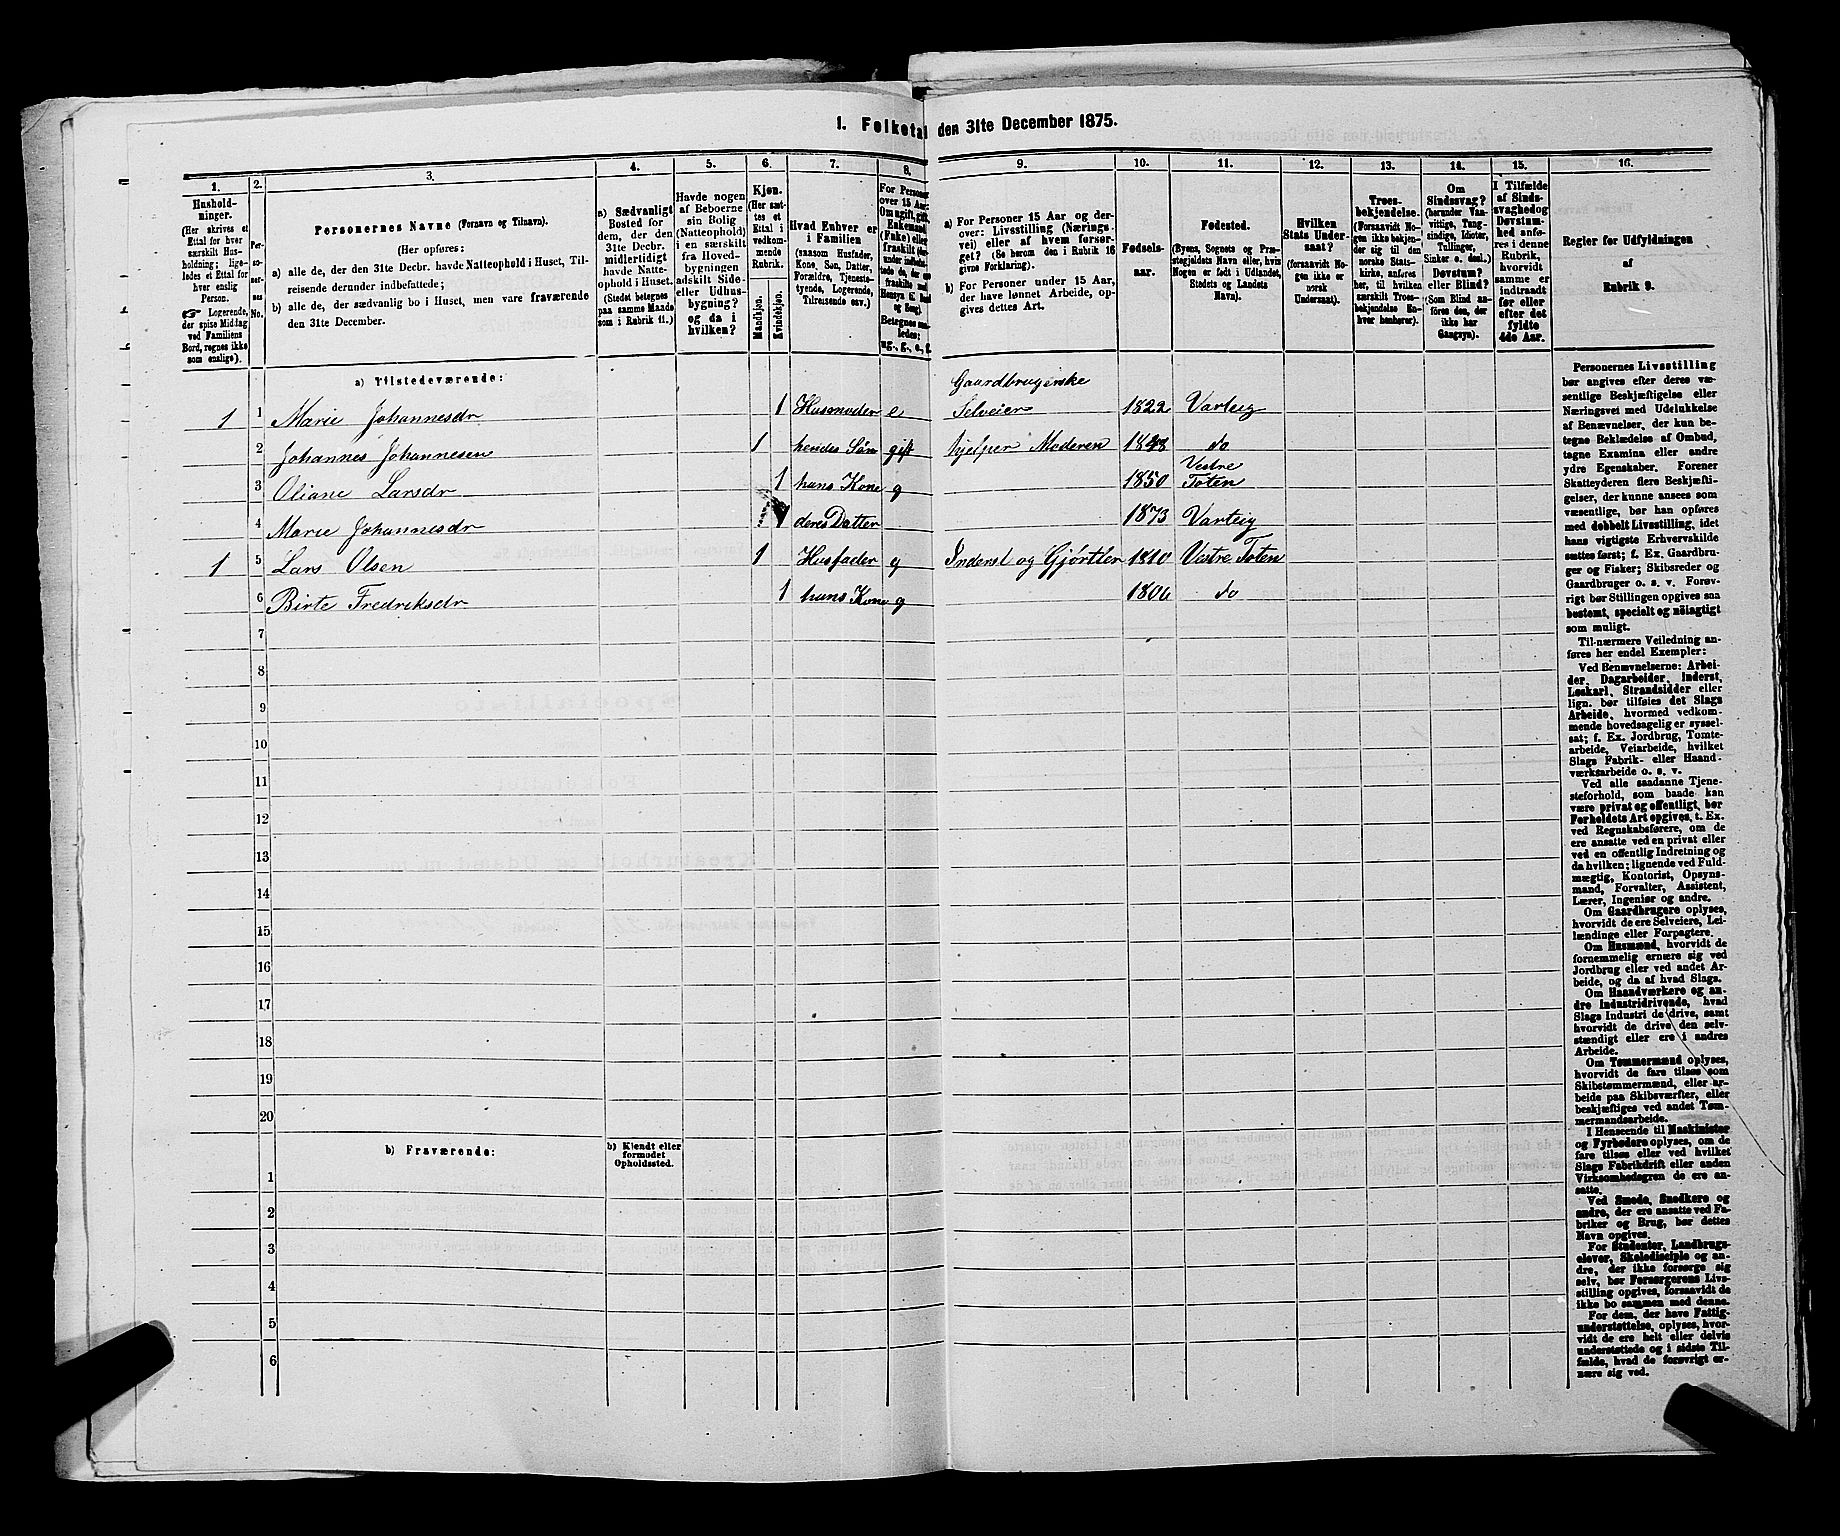 1. Folketal den 31te December 1875.
1. 2. 3. 4. 5. 6. 7. 8. 9. 10. 11. 12. 13. 14. 15. 16.
Hushold-
ninger.
(Her skrives et
Ettal for hver
særskilt Hus-
holdning; lige-
ledes et Ettal for
hver enslig
Person.
☞ Logerende,
der spise Middag
ved Familiens
Bord, regnes ikke
som enslige).
Per-
so-
ner-
nes
No.
Personernes Navne (Fornavn og Tilnavn).
(Her opføres:
a) alle de, der den 31te Decbr. havde Natteophold i Huset, Til-
reisende derunder indbefattede;
b) alle de, der sædvanlig bo i Huset, men vare fraværende
den 31te December.
a) Sædvanligt
Bosted for
dem, der den
31te Decbr.
midlertidigt
havde Natte-
ophold i Huset.
(Stedet betegnes
paa samme Maade
som i Rubrik 11.)
Havde nogen
af Beboerne
sin Bolig
(Natteophold)
i en særskilt
fra Hoved-
bygningen
adskilt Side-
eller Udhus-
bygning?
og da i
hvilken?
Kjøn.
(Her sæt-
tes et
Ettal i
vedkom-
mende
Rubrik.
Mandkjøn.
Kvindekjøn.
Hvad Enhver er
i Familien
(saasom Husfader,
Kone, Søn, Datter,
Forældre, Tjeneste-
tyende, Logerende,
Tilreisende osv.)
For Personer
over 15 Aar:
Om ugift, gift,
Enkemand
(Enke) eller
fraskilt
Betegnes saa-
ledes:
ug., g., e., f.
a) For Personer 15 Aar og der-
over: Livsstilling (Nærings-
vei) eller af hvem forsør-
get? (Se herom den i Rubrik 16
givne Forklaring).
b) For Personer under 15 Aar,
der have lønnet Arbeide, op-
gives dettes Art.
Fødsels-
aar.
Fødested.
(Byens, Sognets og Præ-
stegjeldets Navn eller, hvis
Nogen er født i Udlandet,
Stedets og Landets
Navn).
Hvilken
Stats Under-
saat?
(forsaavidt No-
gen ikke er
norsk
Undersaat).
Troes-
bekjendelse.
(Forsaavidt No-
gen ikke bekjen-
der sig til den
norske Stats-
kirke, anføres
her, til hvilken
særskilt Troes-
bekjendelse En-
hver henhører).
Om
Sindssvag?
(herunder Van-
vittige, Tung-
sindige, Idioter,
Tullinger,
Sinker o. desl.)
Døvstum?
eller Blind?
(Som Blind an-
føres den, der
ikke har
Gangsyn).
I Tilfælde
af Sinds-
svaghed og
Døvstum-
hed anfø-
res i denne
Rubrik,
hvorvidt
samme er
indtraadt
før eller
efter det
fyldte
4de Aar.
Regler for Udfyldningen
af
Rubrik 9.
a) Tilstedeværende:
Gaardbrugerske
1 1 Marie Johannesdr 1 Husmoder e Selveier 1822 Varteig
2 Johannes Johannesen 1 hendes Søn gift hjelper Moderen 1848 do
Vestre
3 Oliane Larsdr 1 hans Kone g 1850 Toten
4 Marie Johannesdr 1 deres Datter 1873 Varteig
1 5 Lars Olsen 1 Husfader g Inderst og Gjørtler 1810 Vestre Toten
6 Birte Fredriksdr 1 hans Kone g 1806 do
7
8
9
10
11
12
13
14
15
16
17
18
19
20
b) Fraværende:
b) Kjendt eller
formodet
Opholdssted.
1
2
3
4
5
6
Personernes Livsstilling
bør angives efter deres væ-
sentlige Beskjæftigelse eller
Næringsvei med Udelukkelse
af Benævnelser, der kun be-
tegne Beklædelse af Ombud,
tagne Examina eller andre
ydre Egenskaber. Forener
Skatteyderen flere Beskjæfti-
gelser, der kunne ansees som
væsentlige, bør han opføres
med dobbelt Livsstilling, idet
hans vigtigste Erhvervskilde
sættes først; f. Ex. Gaardbru-
ger og Fisker; Skibsreder og
Gaardbruger o. s. v. Forøv-
rigt bør Stillingen opgives saa
bestemt, specielt og nöiagtigt
som muligt.
Til nærmere Veiledning an-
føres her endel Exempler:
Ved Benævnelserne: Arbei-
der, Dagarbeider, Inderst,
Løskarl, Strandsidder eller
lign. bør tilføies det Slags
Arbeide, hvormed vedkom-
mende hovedsagelig er syssel-
sat; f. Ex. Jordbrug, Tomte-
arbeide, Veiarbeide, hvilket
Slags Fabrik- eller Haand-
værksarbeide o. s. v.
Ved alle saadanne Tjene-
steforhold, som baade kan
være privat og offentligt, bør
Forholdets Art opgives, t. Ex.
ved Regnskabsførere, om de
ere ansatte ved en privat eller
ved en offentlig Indretning og
da hvilken; lignende ved Fuld-
mægtig, Kontorist, Opsyns-
mand, Forvalter, Assistent,
Lærer, Ingeniør og andre.
Om Gaardbrugere oplyses,
hvorvidt de ere Selveiere, Lei-
lændinge eller Forpagtere.
Om Husmænd, hvorvidt de
fornemmelig ernære sig ved
Jordbrug eller ved andet Ar-
beide, og da af hvad Slags.
Om Haandværkere og an-
dre Industridrivende, hvad
Slags Industri de drive, samt
hvorvidt de drive den selv-
stændigt eller ere i andres
Arbeide.
Om Tømmermænd oplyses,
hvorvidt de fare tilsøs som
Skibstømmermænd, eller ar-
beide paa Skibsværfter, eller
beskjæftiges ved andet Tøm-
mermandsarbeide.
I Henseende til Maskinister
og Fyrbødere oplyses, om de
fare tilsøs eller ved hvilket
Slags Fabrikdrift eller anden
Virksomhedsgren de ere an-
satte.
Ved Smede, Snedkere og
andre, der ere ansatte ved Fa-
briker og Brug, bør dettes
Navn opgives.
For Studenter, Landbrugs-
elever, Skoledisciple og an-
dre, der ikke forsørge sig
selv, bør Forsørgerens Livs-
stilling opgives, forsaavidt de
ikke bo sammen med denne.
For dem, der have Fattig-
understøttelse, oplyses, hvor-
vidt de ere helt eller delvis
understøttede og i sidste Til-
fælde, hvad de forøvrigt er-
nære sig ved.